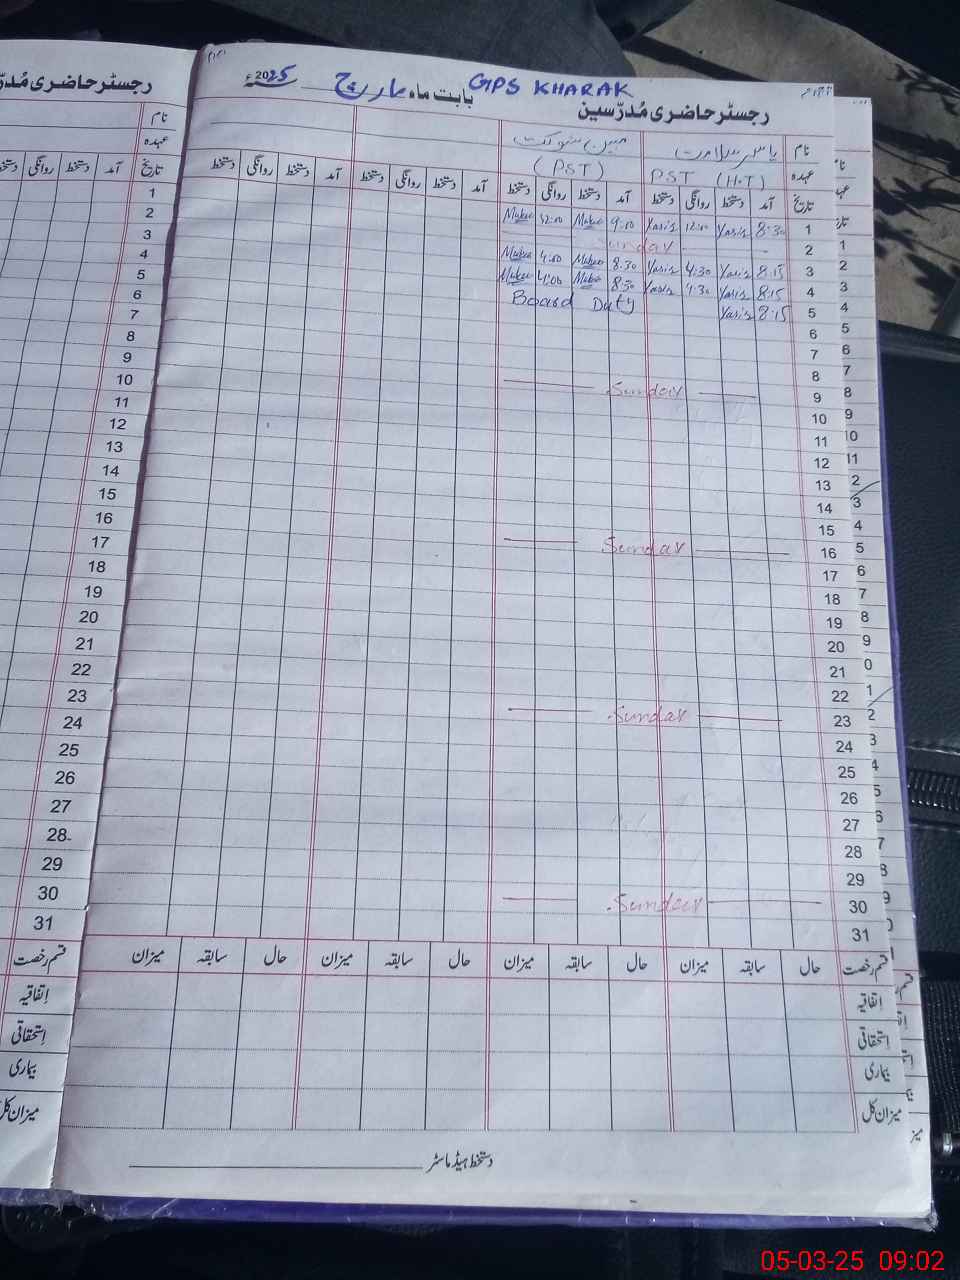 GPS KHARAK
رجسٹر حاضری مُدرّسین بابت ماہ مارچ 2025ء
نام یاسر سلامت
عہدہ PST (H.T) (PST)
تاریخ آمد دستخط روانگی دستخط آمد دستخط روانگی دستخط آمد دستخط روانگی دستخط آمد دستخط روانگی دستخط
1 8:30 Yasir 12:00 Yasir 9:00 12:00
2 Sunday
3 8:15 Yasir 4:30 Yasir 8:30 4:00
4 8:15 Yasir 4:30 Yasir 8:30 4:00
5 8:15 Yasir Board Duty
6
7
8
9 Sunday
10
11
12
13
14
15
16 Sunday
17
18
19
20
21
22
23 Sunday
24
25
26
27
28
29
30 Sunday
31
قسم رخصت حال سابقہ میزان حال سابقہ میزان حال سابقہ میزان حال سابقہ میزان
اتفاقیہ
استحقاقی
بیماری
میزان کل
دستخط ہیڈ ماسٹر
رجسٹر حاضری مُدرّ
نام
عہدہ
تاریخ آمد دستخط روانگی
1
2
3
4
5
6
7
8
9
10
11
12
13
14
15
16
17
18
19
20
21
22
23
24
25
26
27
28
29
30
31
قسم رخصت
اتفاقیہ
استحقاقی
بیماری
میزان کل
05-03-25 09:02